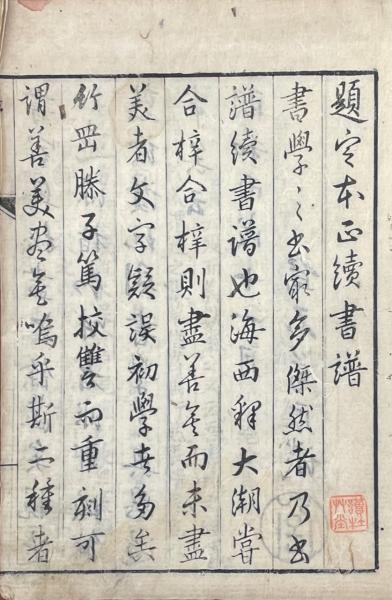 題定本正續書譜
書學之出最多傑然者乃書
譜續書譜也海西釋大潮嘗
合梓合梓則盡善矣而未盡
美者文字疑誤初學者多矣
竹罡滕子篤挍讐而重刻可
謂善美盡矣嗚乎斯二種者